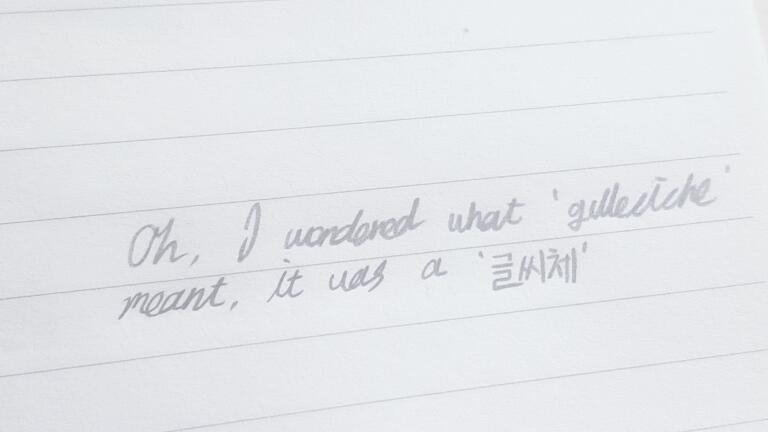 Oh, I wondered what 'gulleciche'
meant, it was a '글씨체'